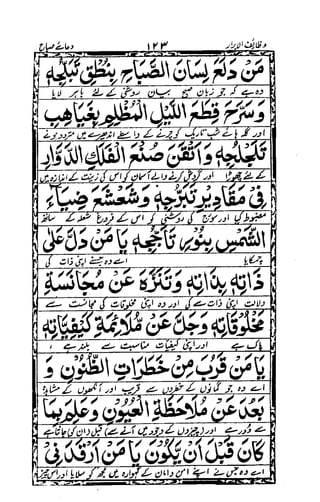 وظائف الابرار ۱۲۳ دعائے صباح
مَنْ دَلَعَ لِسَانَ الصَّبَاحِ بِنُطْقِ تَبَلُّجِهِ
وہ ہے کہ جو زبان صبح بیان روشنی کے لئے باہر لایا
وَسَرَّحَ قِطَعَ اللَّيْلِ الْمُظْلِمِ بِغَيَاهِبِ
اور گلہ ہائے شب تاریک کو چرنے کے واسطے اندھیرے میں متردد ہونے
تَلَجْلُجِهِ وَاَتْقَنَ صُنْعَ الْفَلَكِ الدَّوَّارِ
کے لئے چھوڑا اور گردش کرنے والے آسمان کو اس کی زینت کے اندازہ میں
فِيْ مَقَادِيْرِ تَبَرُّجِهِ وَشَعْشَعَ ضِيَآءَ
مضبوط کیا اور سورج کی روشنی کو اس کے فروغ شعلہ کے ساتھ
الشَّمْسِ بِنُوْرِ تَاَجُّجِهِ يَا مَنْ دَلَّ عَلٰى
چمکایا اے وہ جسنے اپنی ذات کی
ذَاتِهِ بِذَاتِهِ وَتَنَزَّهَ عَنْ مُجَانَسَةِ
دلالت اپنی ذات سے کی اور وہ اپنی مخلوقات کی مجانست سے
مَخْلُوْقَاتِهِ وَجَلَّ عَنْ مُلَآئَمَةِ كَيْفِيَّاتِهِ
پاک ہے اور اپنی کیفیات مناسبت سے بلند ہے
يَا مَنْ قَرُبَ مِنْ خَطَرَاتِ الظُّنُوْنِ وَ
اے وہ جو گمانوں کے خطروں سے قریب اور آنکھوں کے مشاہدہ
بَعُدَ عَنْ مُلَاحَظَةِ الْعُيُوْنِ وَعَلِمَ بِمَا
سے دور ہے اور (چیزوں کے وجود میں آنے سے) قبل ان کی جانتا ہے
كَانَ قَبْلَ اَنْ يَكُوْنَ يَا مَنْ اَرْقَدَنِيْ
اے وہ جس نے اپنے امن و امان کے گہوارہ میں مجھ کو سلایا اور اس چیز